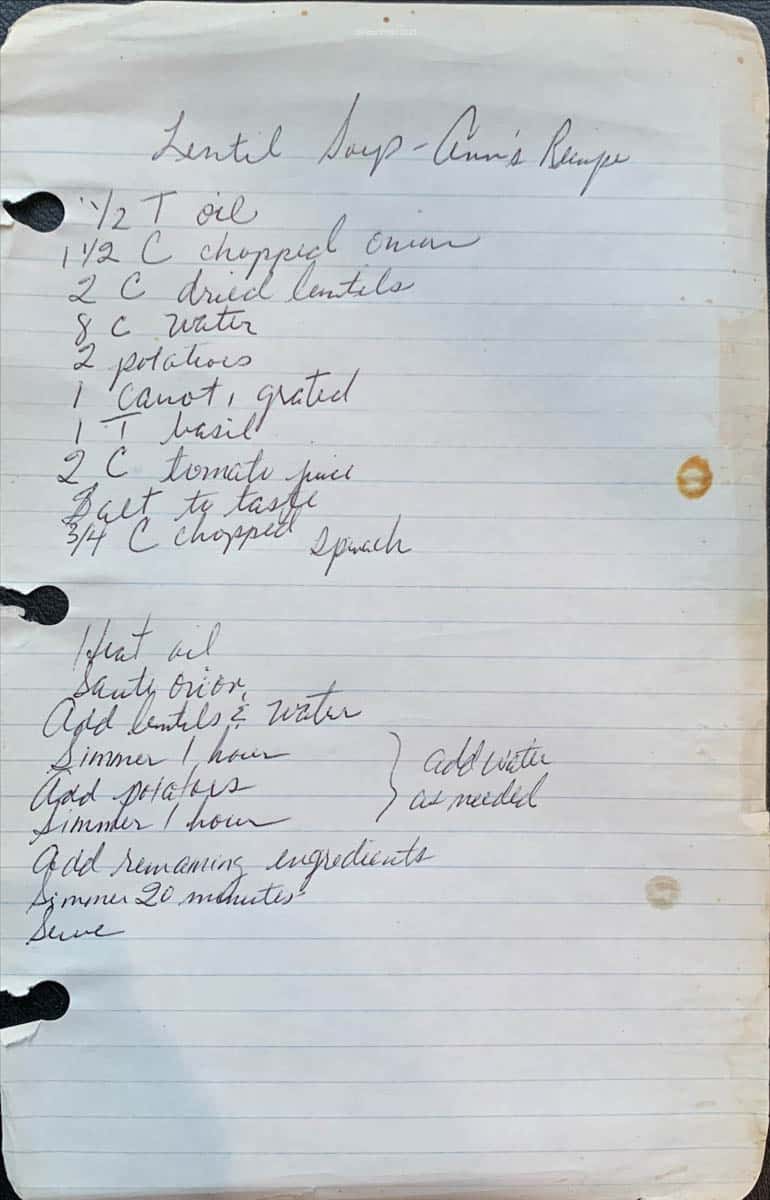 Lentil Soup - Ann's Recipe
1 1/2 T oil
1 1/2 C chopped onion
2 C dried lentils
8 C water
2 potatoes
1 Carrot, grated
1 T basil
2 C tomato juice
Salt to taste
3/4 C chopped spinach
Heat oil
Saute onion
Add lentils & water
Simmer 1 hour
Add potatoes
Simmer 1 hour
add water
as needed
Add remaining engredients
Simmer 20 minutes
Serve